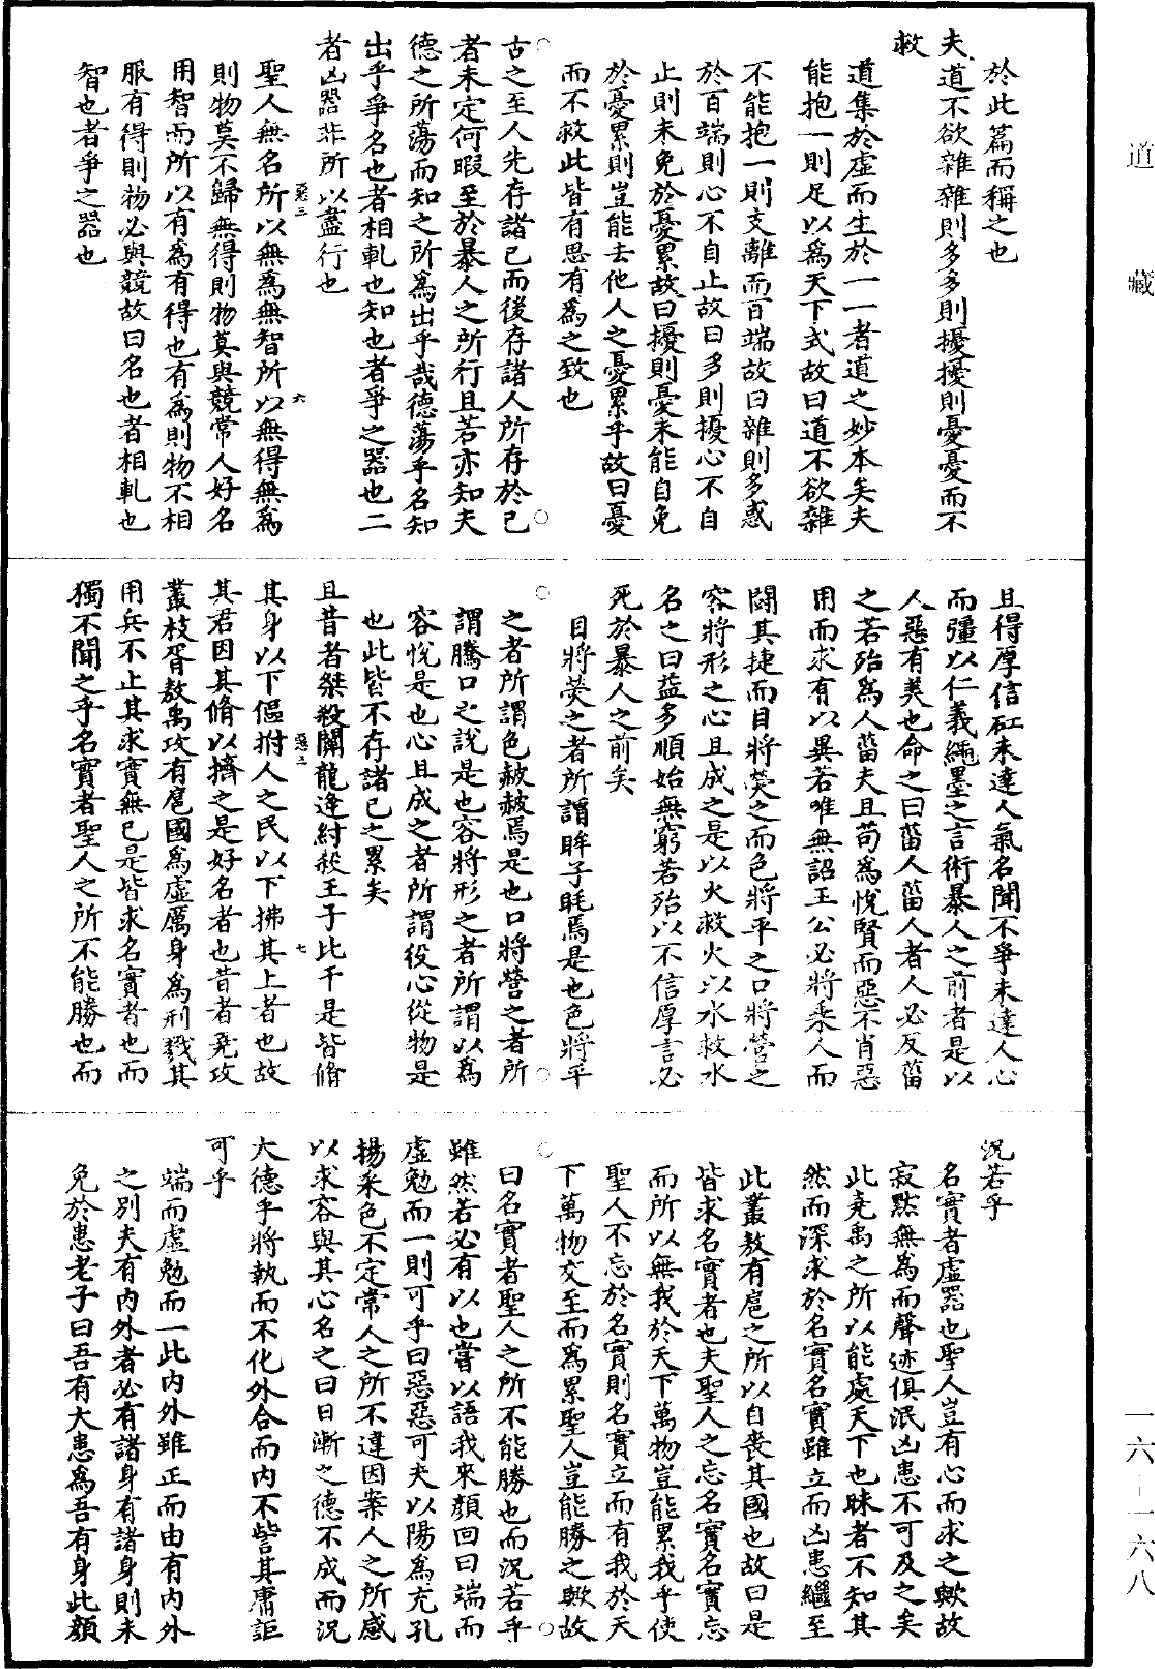 於此篇而稱之也
夫道不欲雜雜則多多則擾擾則憂憂而不
救
道集於虛而生於一一者道之妙本矣夫
能抱一則足以爲天下式故曰道不欲雜
不能抱一則支離而百端故曰雜則多惑
於百端則心不自止故曰多則擾心不自
止則未免於憂累故曰擾則憂未能自免
於憂累則豈能去他人之憂累乎故曰憂
而不救此皆有思有爲之致也
古之至人先存諸己而後存諸人所存於己
者未定何暇至於暴人之所行且若亦知夫
德之所蕩而知之所爲出乎哉德蕩乎名知
出乎爭名也者相軋也知也者爭之器也二
者凶器非所以盡行也
惡三 六
聖人無名所以無爲無智所以無得無爲
則物莫不歸無得則物莫與競常人好名
用智而所以有爲有得也有爲則物不相
服有得則物必與競故曰名也者相軋也
智也者爭之器也
且得厚信矼未達人氣名聞不爭未達人心
而彊以仁義繩墨之言術暴人之前者是以
人惡有美也命之曰菑人菑人者人必反菑
之若殆爲人菑夫且苟爲悅賢而惡不肖惡
用而求有以異若唯無詔王公必將乘人而
鬬其捷而目將熒之而色將平之口將營之
容將形之心且成之是以火救火以水救水
名之曰益多順始無窮若殆以不信厚言必
死於暴人之前矣
目將熒之者所謂眸子眊焉是也色將平
之者所謂色赧赧焉是也口將營之者所
謂騰口之說是也容將形之者所謂以爲
容悅是也心且成之者所謂役心從物是
也此皆不存諸己之累矣
且昔者桀殺關龍逄紂殺王子比干是皆脩
惡三 七
其身以下傴拊人之民以下拂其上者也故
其君因其脩以擠之是好名者也昔者堯攻
叢枝胥敖禹攻有扈國爲虛厲身爲刑戮其
用兵不止其求實無已是皆求名實者也而
獨不聞之乎名實者聖人之所不能勝也而
況若乎
名實者虛器也聖人豈有心而求之歟故
寂默無爲而聲迹俱泯凶患不可及之矣
此堯禹之所以能處天下也昧者不知其
然而深求於名實名實雖立而凶患繼至
此叢敖有扈之所以自喪其國也故曰是
皆求名實者也夫聖人之忘名實名實忘
而所以無我於天下萬物豈能累我乎使
聖人不忘於名實則名實立而有我於天
下萬物交至而爲累聖人豈能勝之歟故
曰名實者聖人之所不能勝也而況若乎
雖然若必有以也嘗以語我來顏回曰端而
虛勉而一則可乎曰惡惡可夫以陽爲充孔
揚采色不定常人之所不違因案人之所感
以求容與其心名之曰日漸之德不成而況
大德乎將執而不化外合而內不訾其庸詎
可乎
端而虛勉而一此內外雖正而由有內外
之別夫有內外者必有諸身有諸身則未
免於患老子曰吾有大患爲吾有身此顏
道藏
一六-一六八